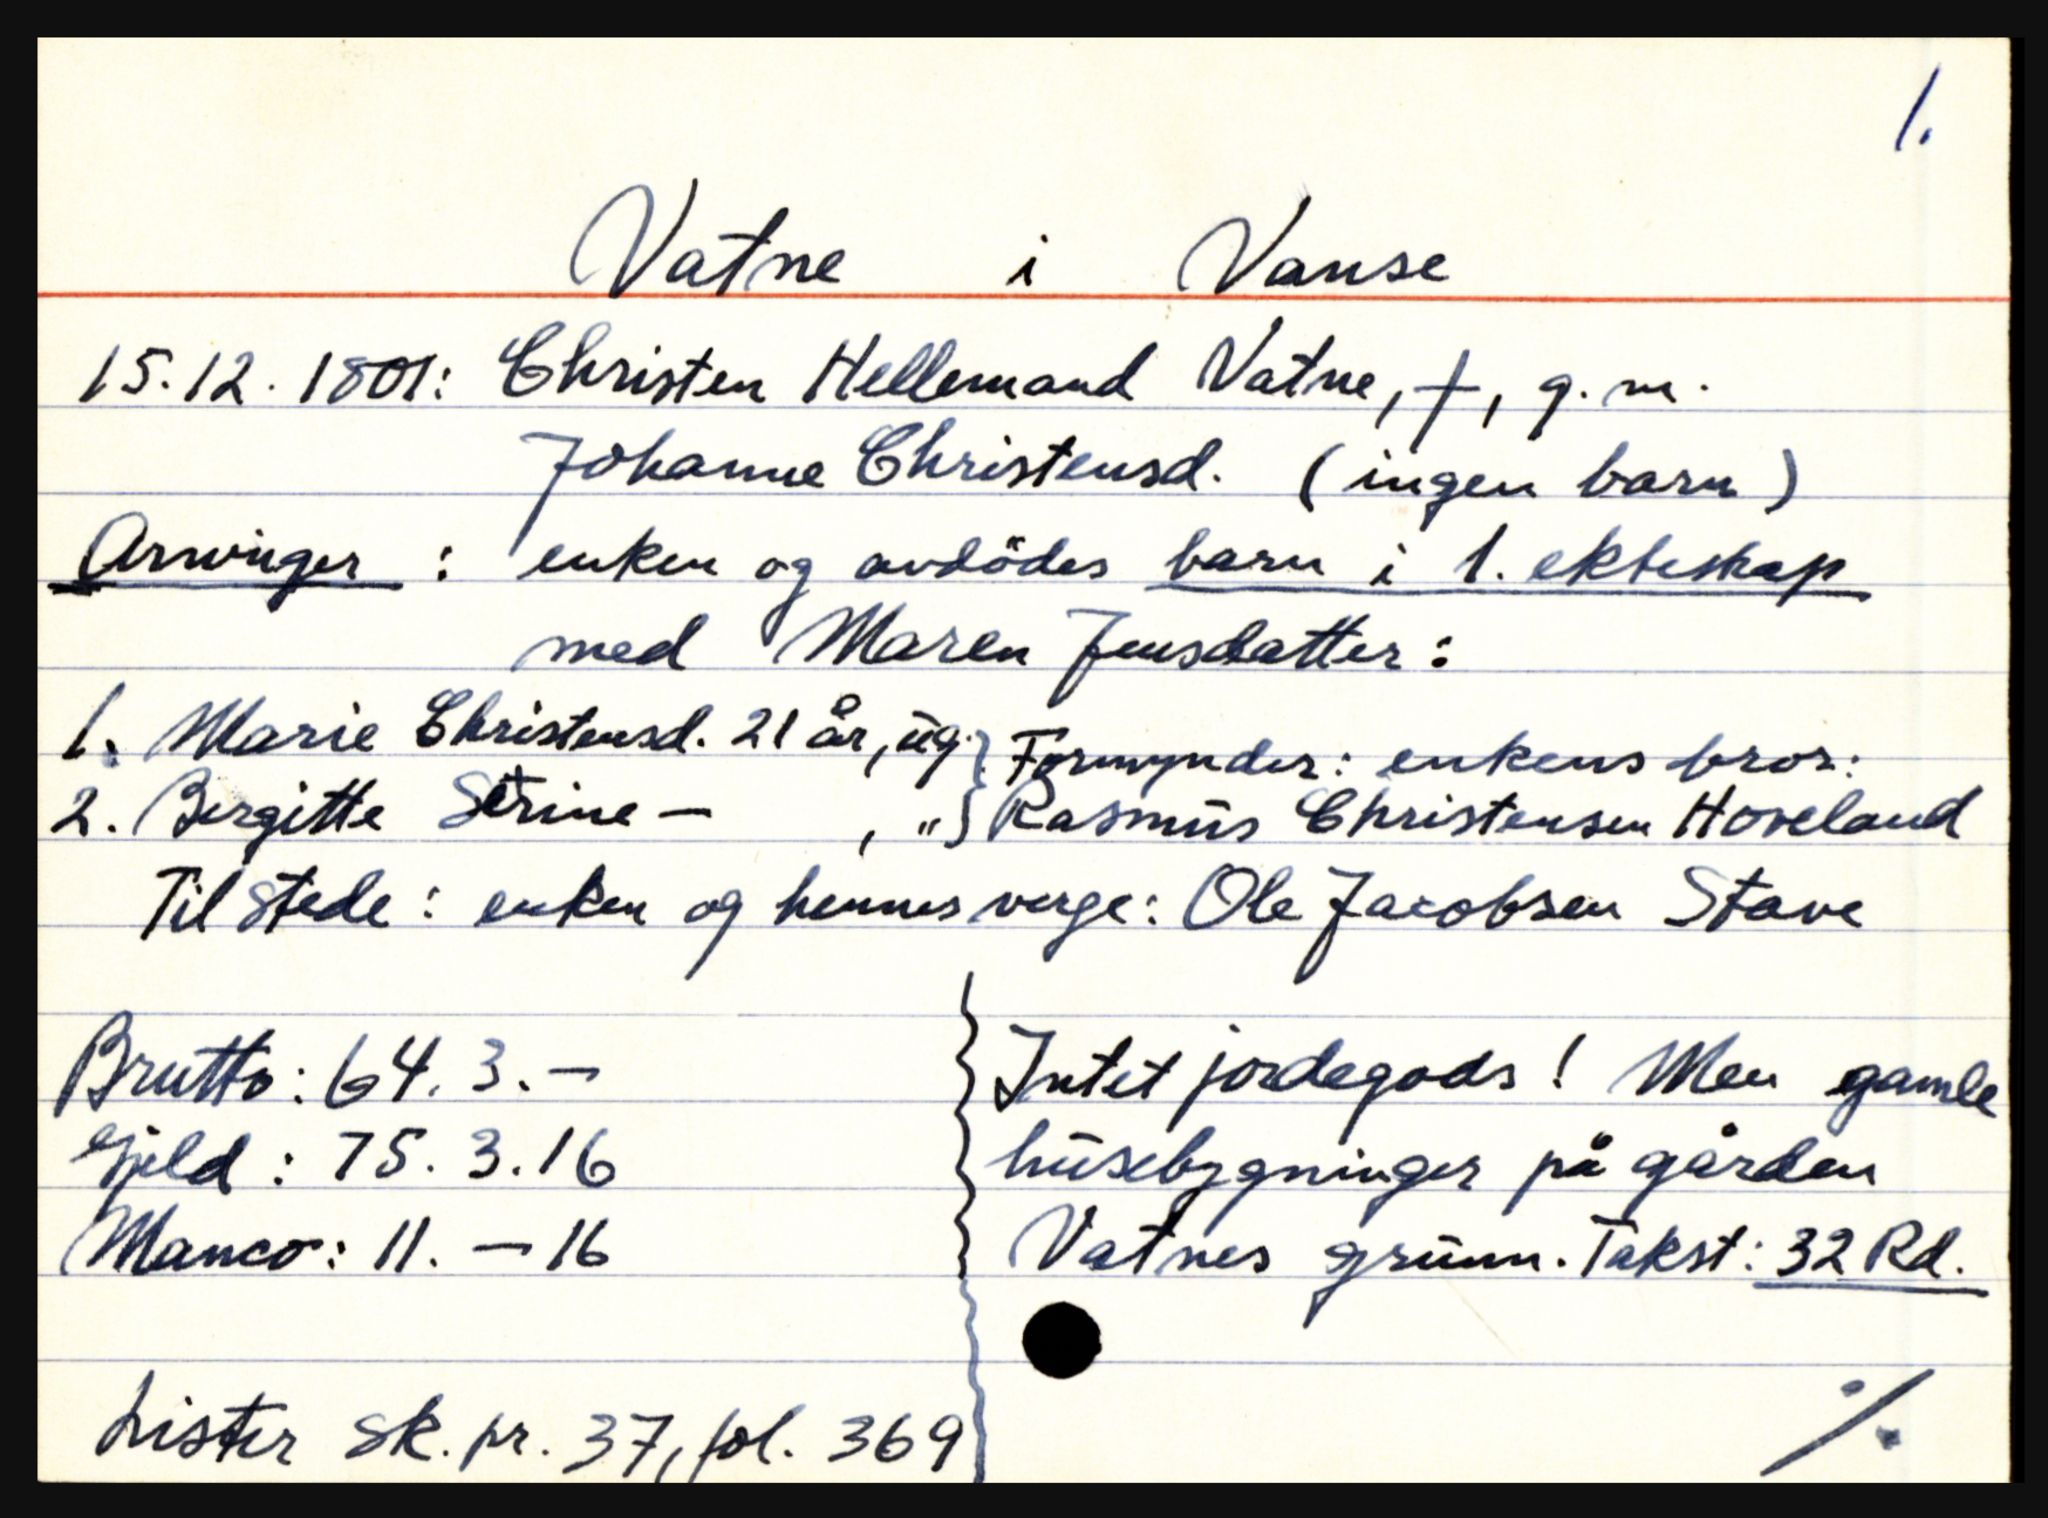 1.
Vatne i Vanse
15.12.1801: Christen Hellemand Vatne, †, g.m.
Johanne Christensd. (ingen barn)
Arvinger : enken og avdödes barn i 1. ekteskap
med Maren Jensdatter:
1. Marie Christensd. 21 år, ug. } Formynder: enkens bror:
2. Birgitte Serine — , „ } Rasmus Christensen Hoveland
Til stede: enken og hennes verge: Ole Jacobsen Stave
Brutto: 64. 3. —
Gjeld : 75. 3. 16
Manco: 11. — 16
Intet jordegods! Men gamle
husebygninger på gården
Vatnes grunn. Takst: 32 Rd.
Lister sk. pr. 37, fol. 369
./.